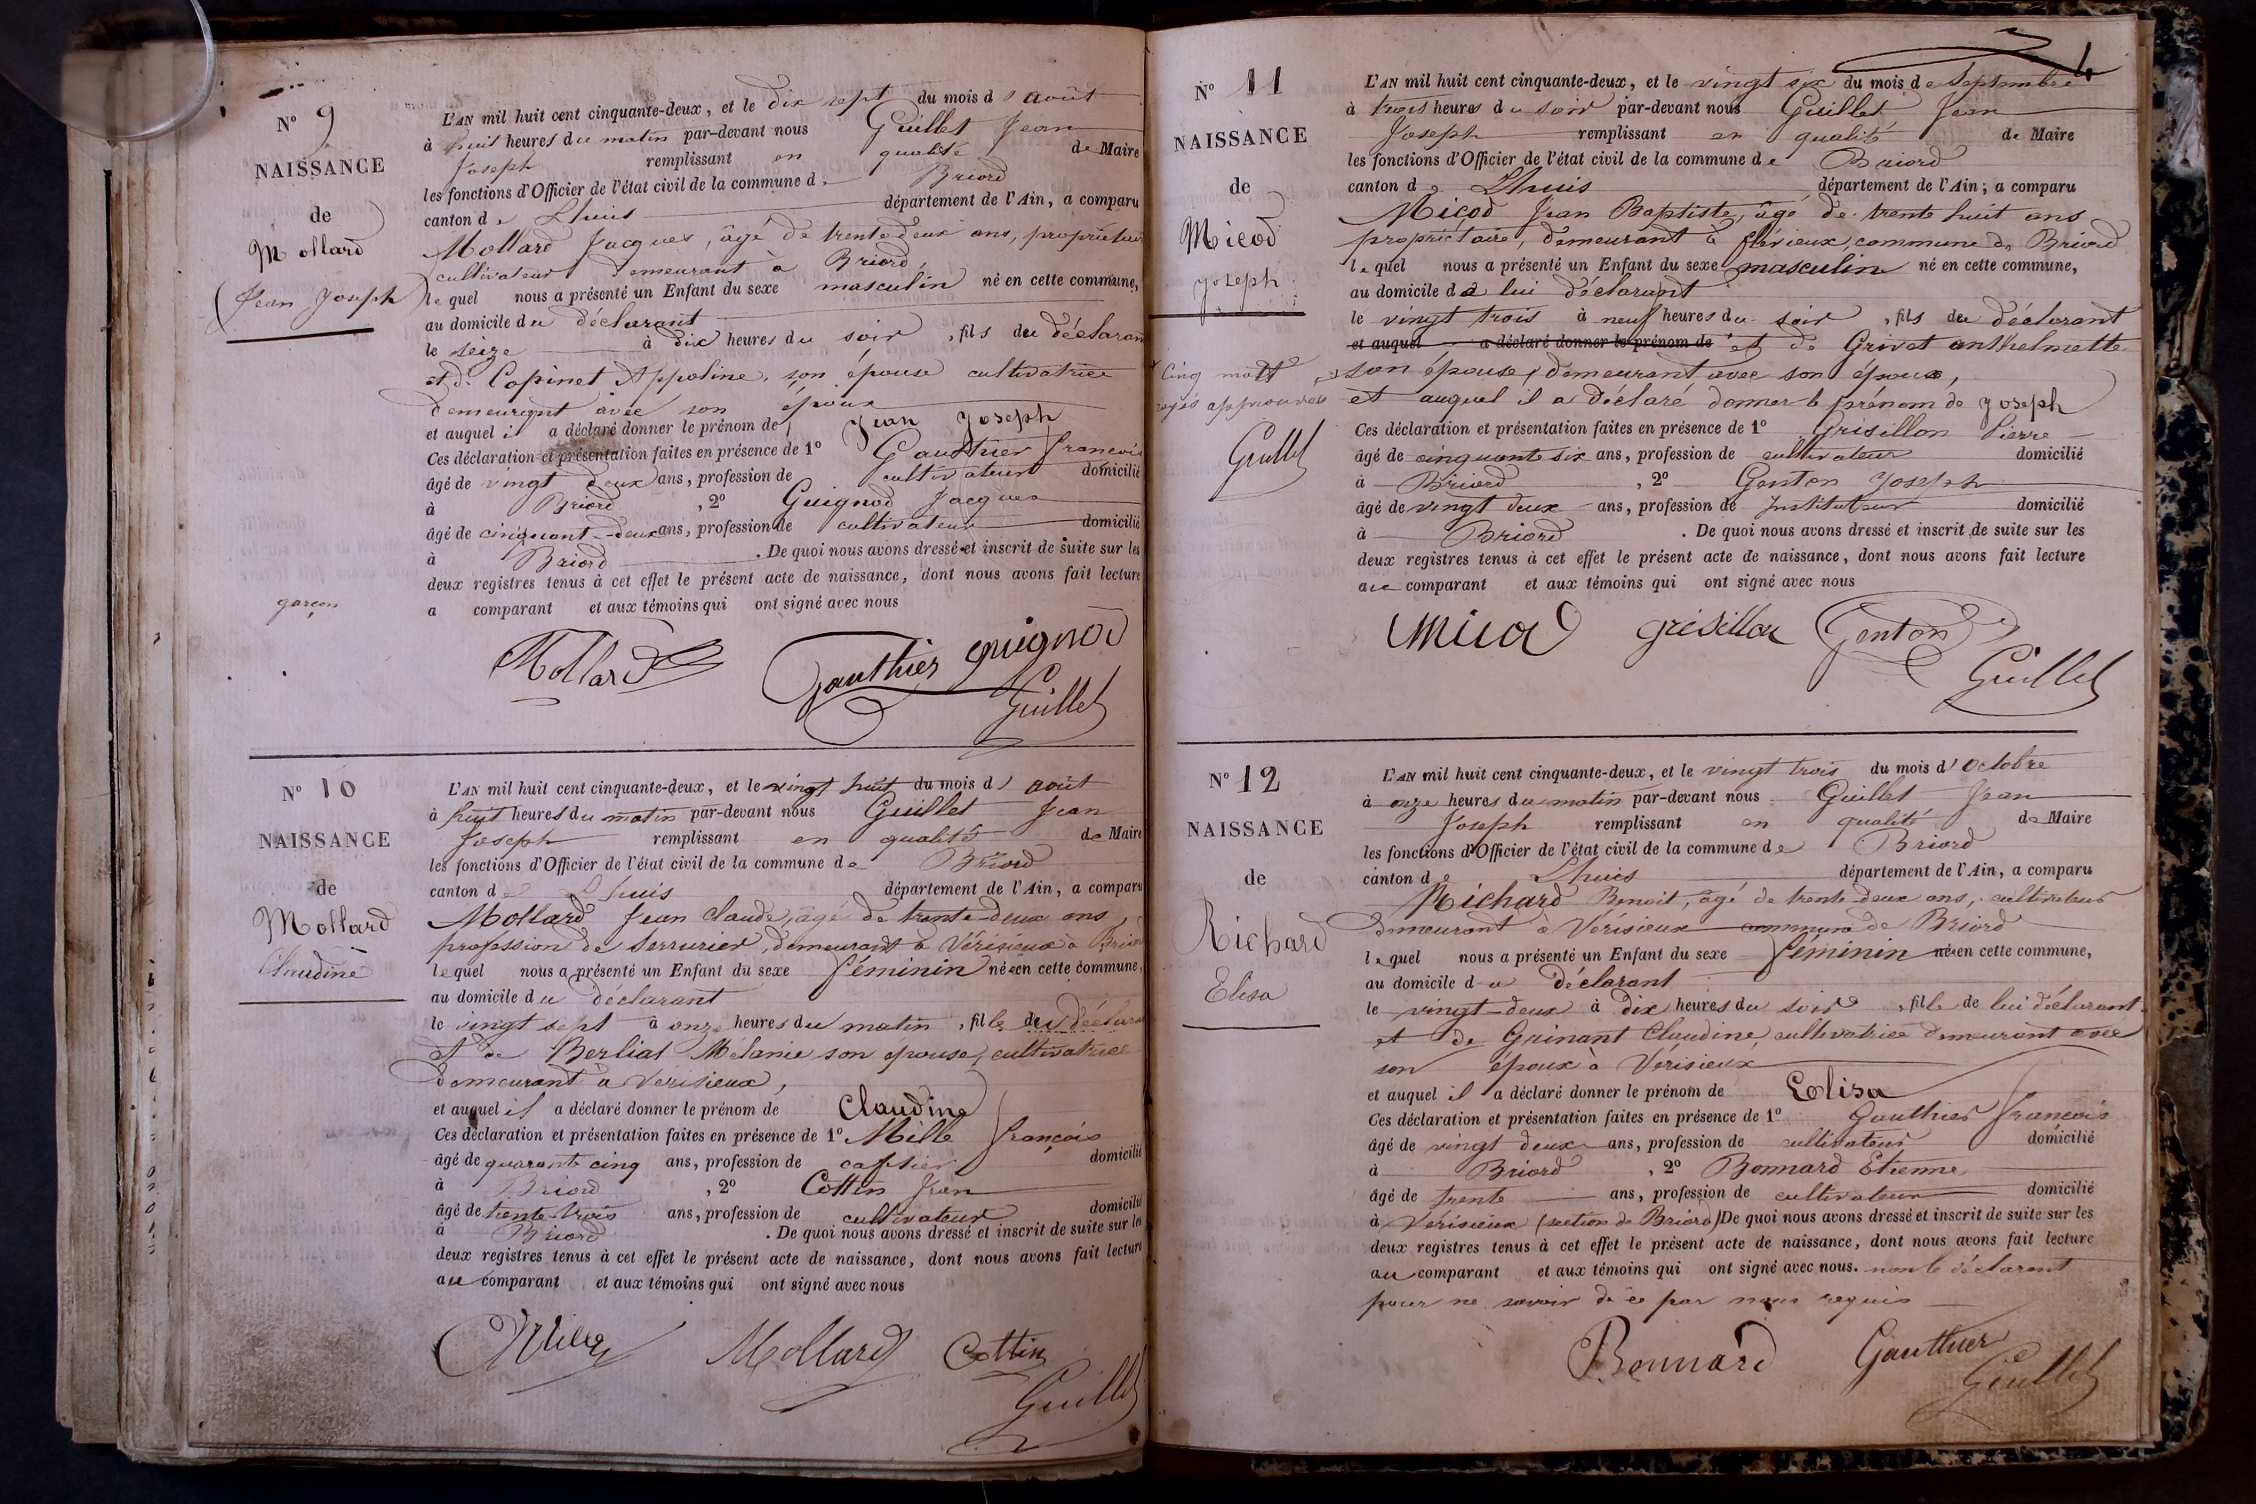 N° 9
NAISSANCE
de
Mollard
Jean Joseph
garçon
L'AN mil huit cent cinquante-deux, et le dix sept du mois d'août
à huit heures du matin par-devant nous Guillet Jean
Joseph remplissant en qualité de Maire
les fonctions d'Officier de l'état civil de la commune de Briord
canton de Lhuis département de l'Ain, a comparu
Mollard Jacques, âgé de trente deux ans, propriétaire
cultivateur demeurant à Briord
lequel nous a présenté un Enfant du sexe masculin né en cette commune,
au domicile du déclarant
le seize à dix heures du soir, fils du déclarant
et de Copinet Appoline, son épouse cultivatrice
demeurant avec son époux
et auquel il a déclaré donner le prénom de Jean Joseph
Ces déclaration et présentation faites en présence de 1° Gauthier François
âgé de vingt deux ans, profession de cultivateur domicilié
à Briord, 2° Guignod Jacques
âgé de cinquant-deux ans, profession de cultivateur domicilié
à Briord. De quoi nous avons dressé et inscrit de suite sur les
deux registres tenus à cet effet le présent acte de naissance, dont nous avons fait lecture
a comparant et aux témoins qui ont signé avec nous
Mollard Gauthier guignod
Guillet
N° 10
NAISSANCE
de
Mollard
Claudine
L'AN mil huit cent cinquante-deux, et le vingt huit du mois d'août
à huit heures du matin par-devant nous Guillet Jean
Joseph remplissant en qualité de Maire
les fonctions d'Officier de l'état civil de la commune de Briord
canton de Lhuis département de l'Ain, a comparu
Mollard Jean claude, âgé de trente-deux ans
profession de Serrurier, demeurant à Vérisieux à Briord
lequel nous a présenté un Enfant du sexe féminin né en cette commune,
au domicile du déclarant
le vingt sept à onze heures du matin, fille du déclarant
et de Berliat Mélanie son épouse, cultivatrice
demeurant à Vérisieux,
et auquel il a déclaré donner le prénom de Claudine
Ces déclaration et présentation faites en présence de 1° Mille François
âgé de quarante cinq ans, profession de domicilié
à Briord, 2° Cottin Jean
âgé de trente-trois ans, profession de cultivateur domicilié
à Briord. De quoi nous avons dressé et inscrit de suite sur les
deux registres tenus à cet effet le présent acte de naissance, dont nous avons fait lecture
au comparant et aux témoins qui ont signé avec nous
Mollard Cottin
Guillet
N° 11
NAISSANCE
de
Micod
Joseph
Cinq mots
rayés approuvés
Guillet
L'AN mil huit cent cinquante-deux, et le vingt six du mois de Septembre
à trois heures du soir par-devant nous Guillet Jean
Joseph remplissant en qualité de Maire
les fonctions d'Officier de l'état civil de la commune de Briord
canton de Lhuis département de l'Ain; a comparu
Micod Jean Baptiste, âgé de trente huit ans
propriétaire, demeurant à flévieux, commune de Briord
lequel nous a présenté un Enfant du sexe masculin né en cette commune,
au domicile de lui déclarant
le vingt trois à neuf heures du soir, fils du déclarant
et auquel a déclaré donner le prénom de et de Grivet anthelmette
son épouse, demeurant avec son époux,
et auquel il a déclaré donner le prénom de Joseph
Ces déclaration et présentation faites en présence de 1° Grisillon Pierre
âgé de cinquante six ans, profession de cultivateur domicilié
à Briord, 2° Genton Joseph
âgé de vingt deux ans, profession de Instituteur domicilié
à Briord. De quoi nous avons dressé et inscrit de suite sur les
deux registres tenus à cet effet le présent acte de naissance, dont nous avons fait lecture
au comparant et aux témoins qui ont signé avec nous
Micod grésillon Genton
Guillet
N° 12
NAISSANCE
de
Richard
Elisa
L'AN mil huit cent cinquante-deux, et le vingt trois du mois d'Octobre
à onze heures du matin par-devant nous Guillet Jean
Joseph remplissant en qualité de Maire
les fonctions d'Officier de l'état civil de la commune de Briord
canton de Lhuis département de l'Ain, a comparu
Richard Benoit, âgé de trente-deux ans, cultivateur
demeurant à Vérisieux commune de Briord
lequel nous a présenté un Enfant du sexe féminin né en cette commune,
au domicile du déclarant
le vingt-deux à dix heures du soir, fille de lui déclarant
et de Grinant Claudine, cultivatrice demeurant avec
son époux à Vérisieux
et auquel il a déclaré donner le prénom de Elisa
Ces déclaration et présentation faites en présence de 1° Gauthier François
âgé de vingt deux ans, profession de cultivateur domicilié
à Briord, 2° Bonnard Etienne
âgé de trente ans, profession de cultivateur domicilié
à Vérisieux (section de Briord) De quoi nous avons dressé et inscrit de suite sur les
deux registres tenus à cet effet le présent acte de naissance, dont nous avons fait lecture
au comparant et aux témoins qui ont signé avec nous. non le déclarant
pour ne savoir de ce par nous requis
Bonnard Gauthier
Guillet